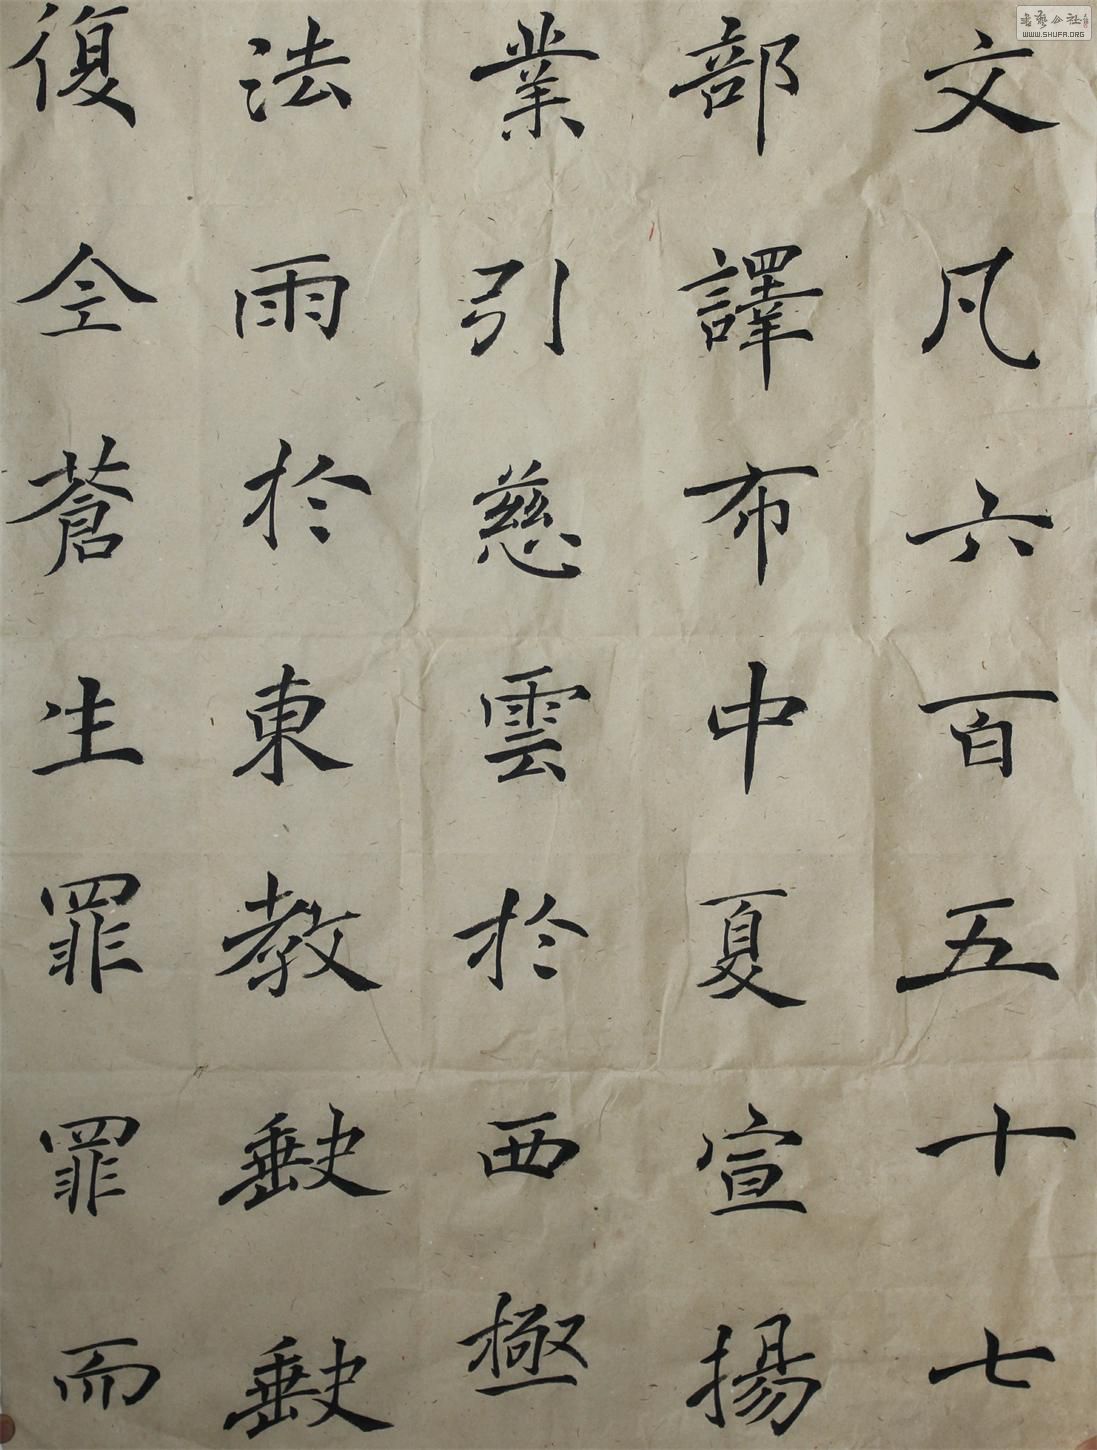 文凡六百五十七
部譯布中夏宣揚
業引慈雲於西極
法雨於東教
復仝蒼生罪罪而
書藝公社
WWW.SHUFA.ORG